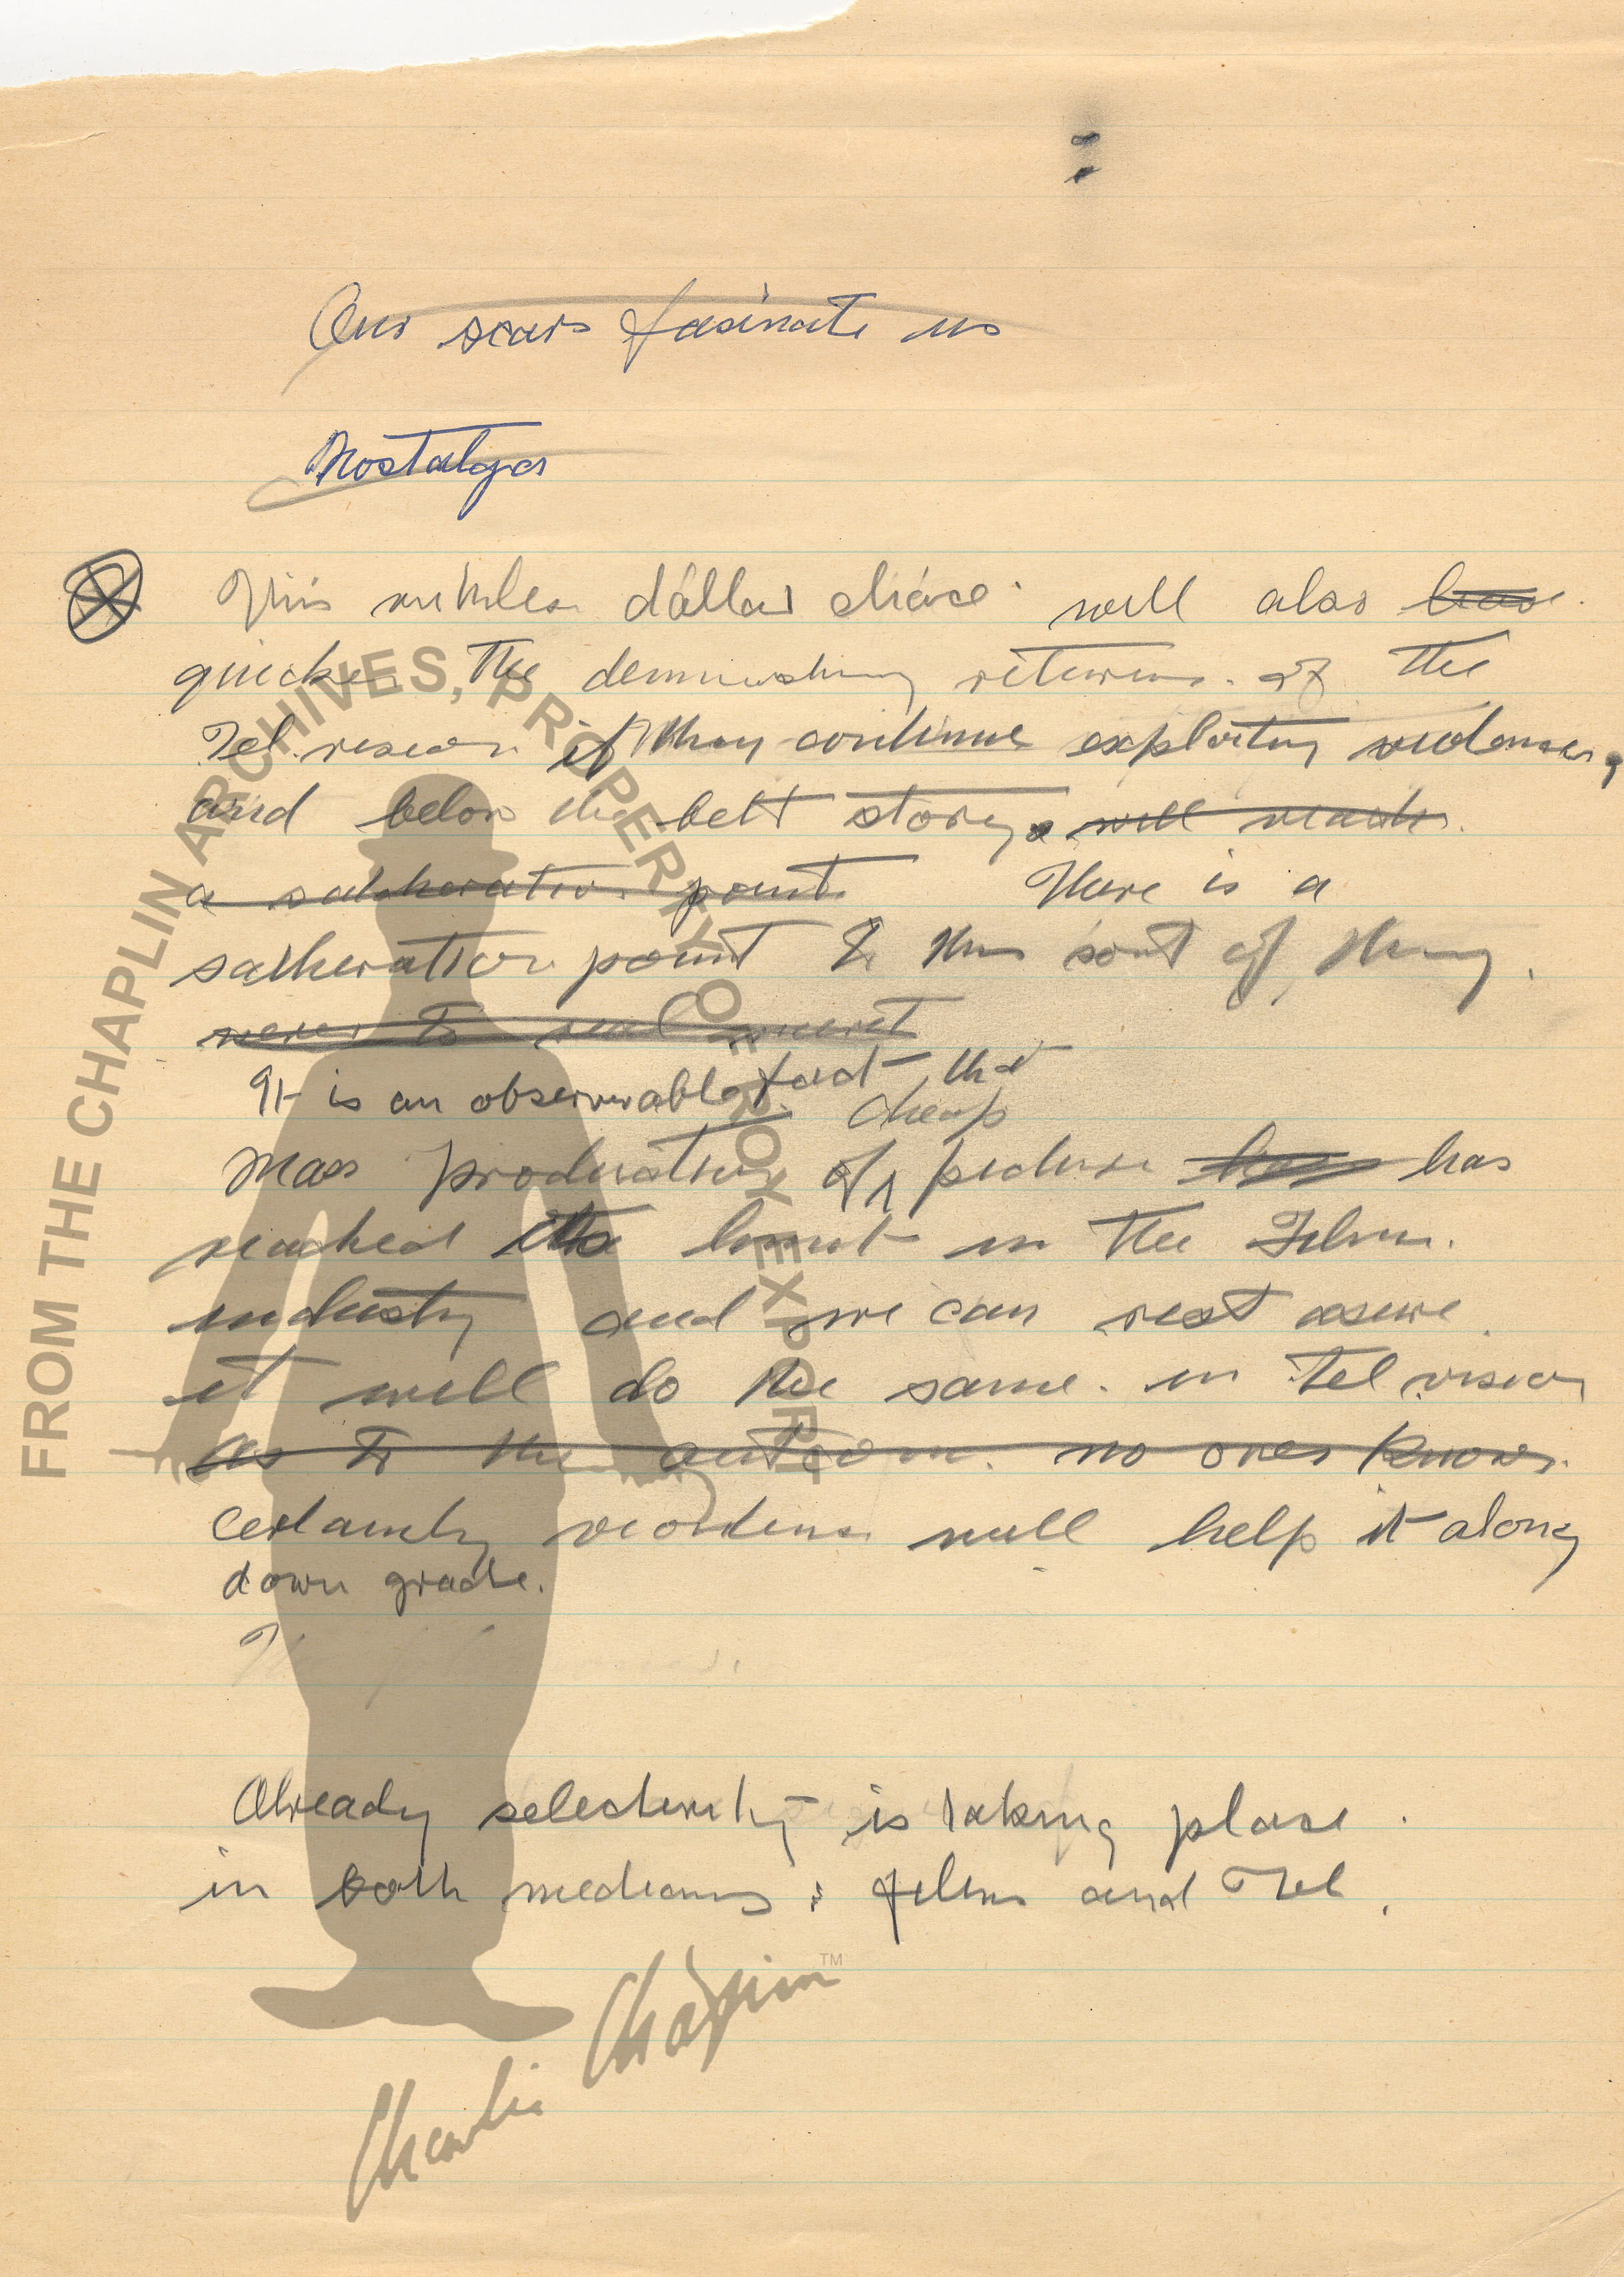 Our scars fasinate us
Nostalga
This ruthless dollar chase will also have
quicken the deminishing returns of the
Television if they continue exploiting violence,
and below the belt story. will reach
a satheration point There is a
satheration point to this sort of thing.
never to real merit
It is an observerable fact that
cheap
Mass production of picture has has
reached its limit in the Film
industry and we can rest asure
it will do the same in Telvision
As to the outcome no ones knows.
Certainly violence will help it along
down grade.
Already selectivity is taking place
in both mediums: films and Tel.
FROM THE CHAPLIN ARCHIVES, PROPERTY OF ROY EXPORT
Charlie Chaplin™